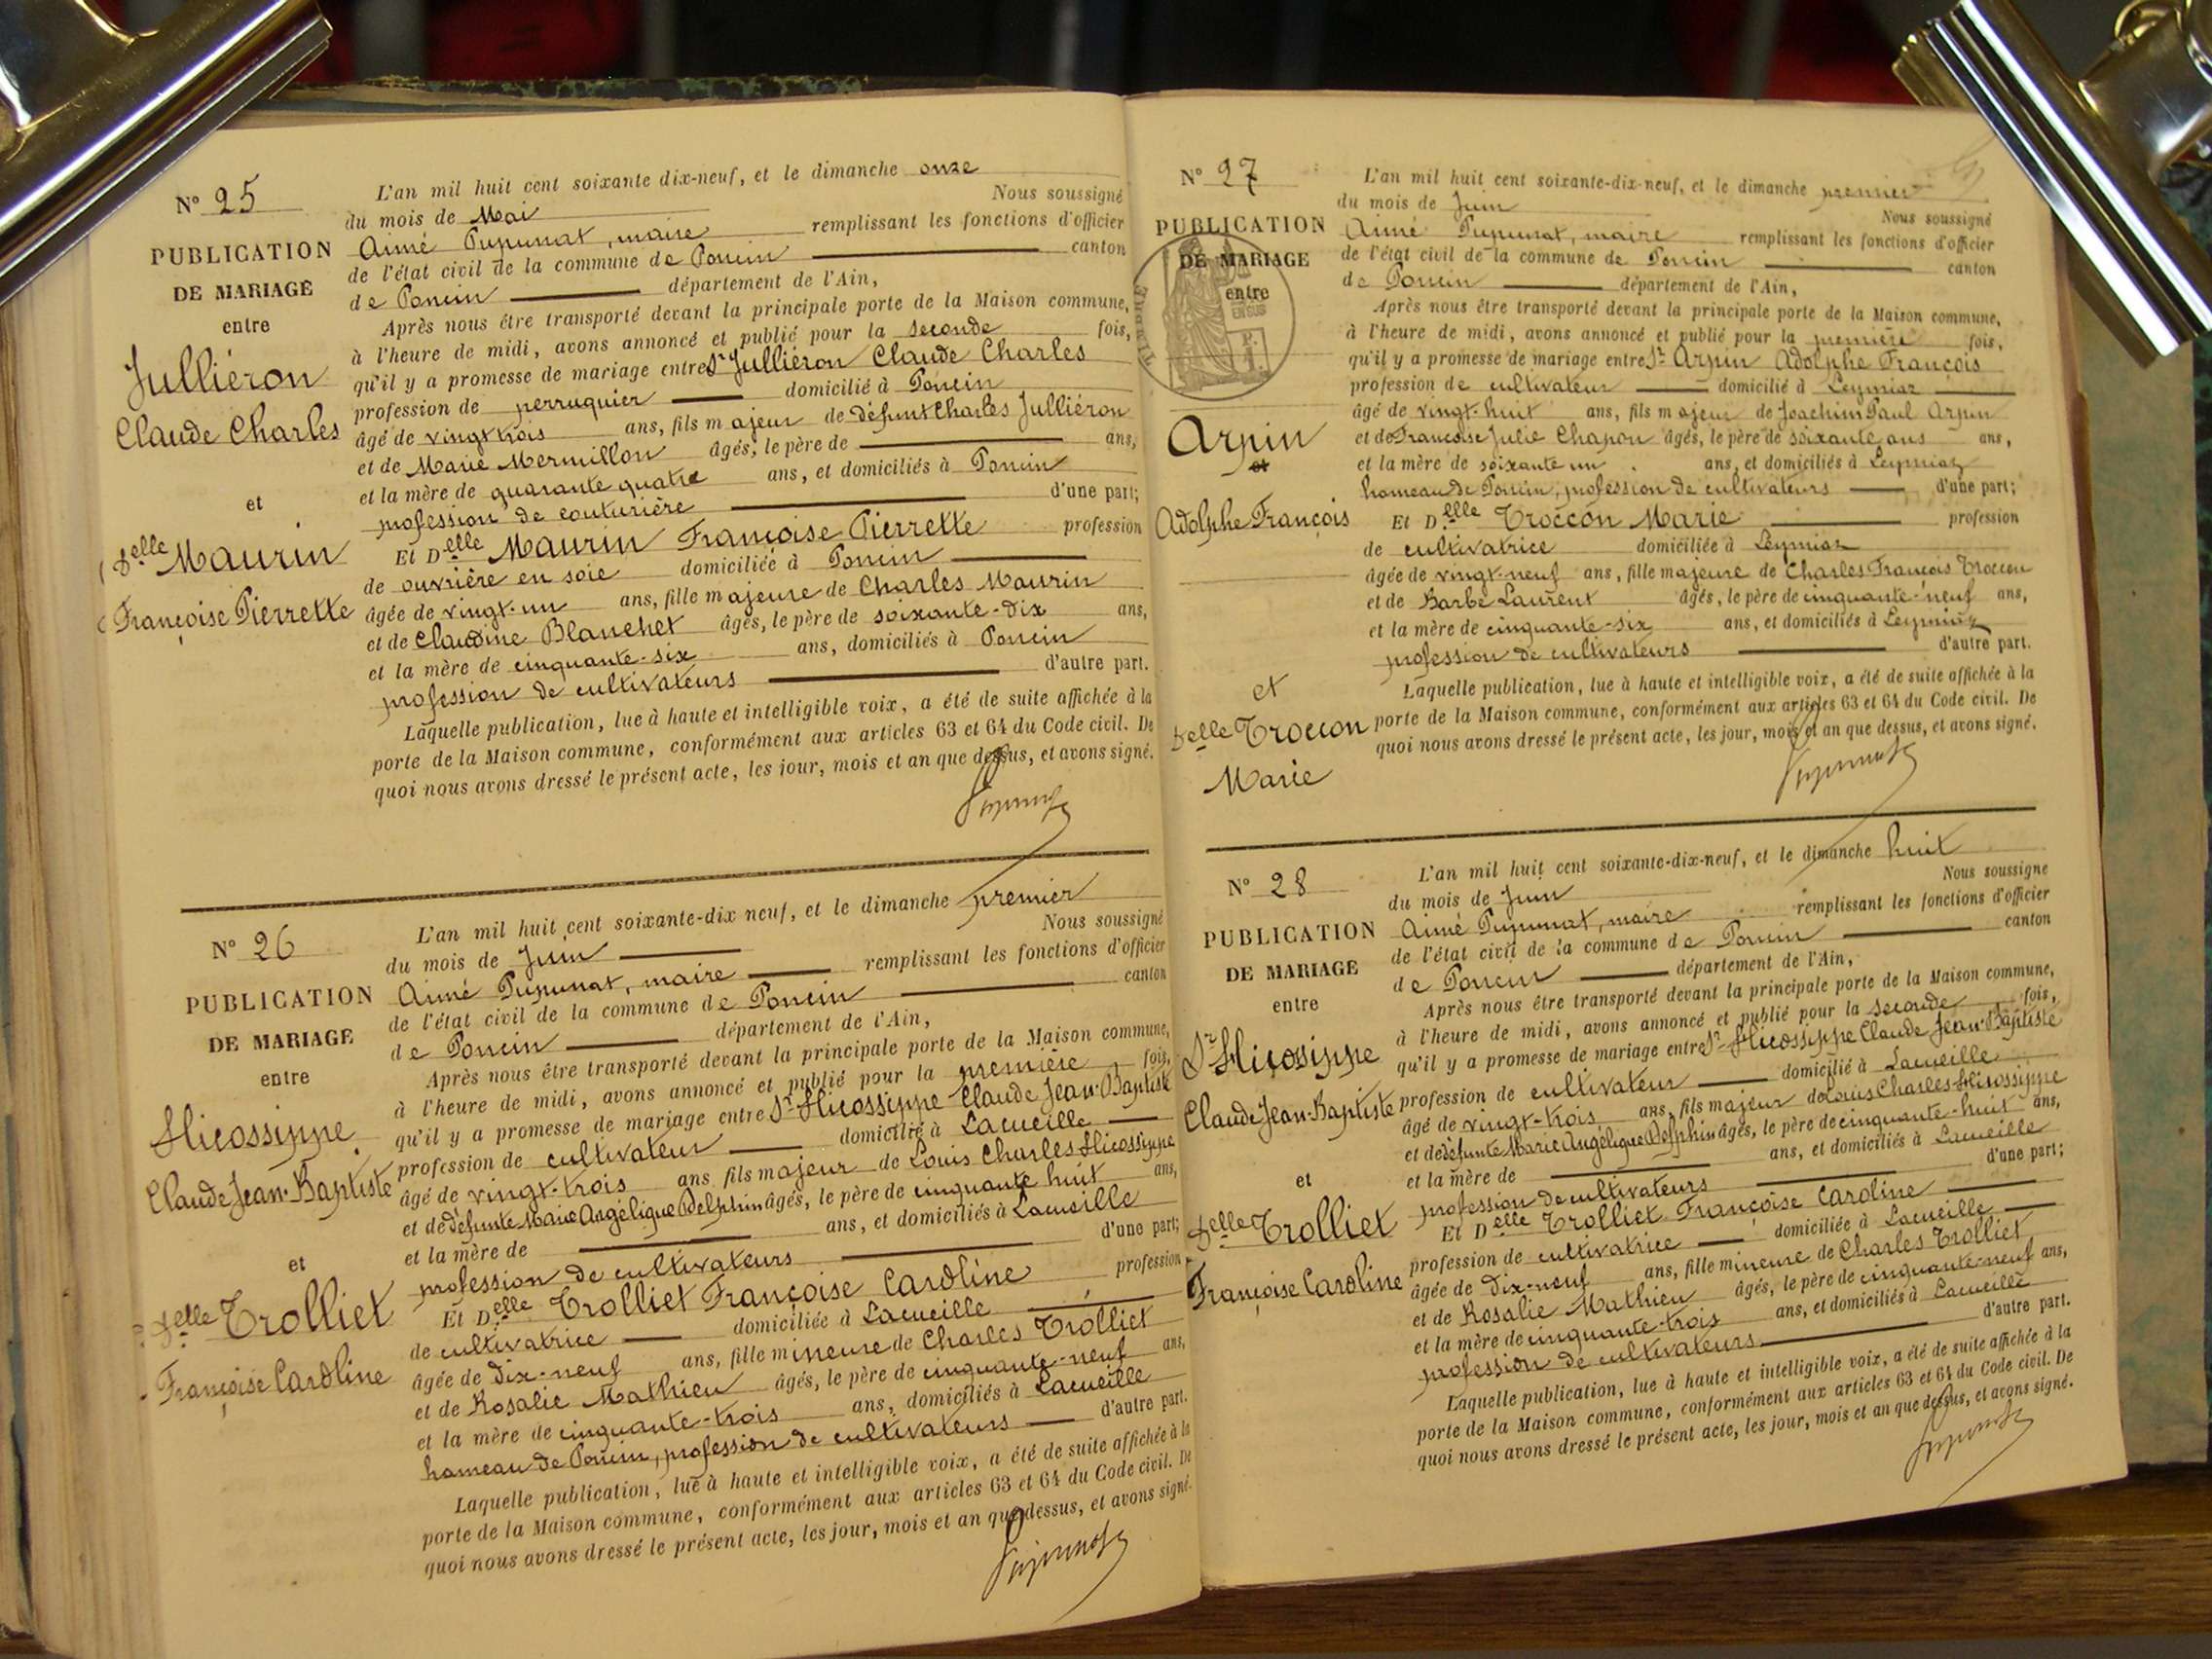 N° 25
PUBLICATION
DE MARIAGE
entre
Julliéron
Claude Charles
et
Delle Maurin
Françoise Pierrette
L'an mil huit cent soixante dix-neuf, et le dimanche onze
du mois de Mai Nous soussigné
Aimé Pupunat, maire remplissant les fonctions d'officier
de l'état civil de la commune de Poncin canton
de Poncin département de l'Ain,
Après nous être transporté devant la principale porte de la Maison commune,
à l'heure de midi, avons annoncé et publié pour la seconde fois,
qu'il y a promesse de mariage entre Sr Julliéron Claude Charles
profession de perruquier domicilié à Poncin
âgé de vingt trois ans, fils majeur de défunt Charles Julliéron
et de Marie Mermillon âgés, le père de ans,
et la mère de quarante quatre ans, et domiciliés à Poncin
profession de couturière d'une part;
Et Delle Maurin Françoise Pierrette profession
de ouvrière en soie domiciliée à Poncin
âgée de vingt-un ans, fille majeure de Charles Maurin
et de Claudine Blanchet âgés, le père de soixante-dix ans,
et la mère de cinquante-six ans, domiciliés à Poncin
profession de cultivateurs d'autre part.
Laquelle publication, lue à haute et intelligible voix, a été de suite affichée à la
porte de la Maison commune, conformément aux articles 63 et 64 du Code civil. De
quoi nous avons dressé le présent acte, les jour, mois et an que dessus, et avons signé.
Pupunat
N° 26
PUBLICATION
DE MARIAGE
entre
Hicossippe
Claude Jean-Baptiste
et
Delle Trolliet
Françoise Caroline
L'an mil huit cent soixante-dix neuf, et le dimanche premier
du mois de Juin Nous soussigné
Aimé Pupunat, maire remplissant les fonctions d'officier
de l'état civil de la commune de Poncin canton
de Poncin département de l'Ain,
Après nous être transporté devant la principale porte de la Maison commune,
à l'heure de midi, avons annoncé et publié pour la première fois,
qu'il y a promesse de mariage entre Sr Hicossippe Claude Jean-Baptiste
profession de cultivateur domicilié à Lacueille
âgé de vingt-trois ans fils majeur de Louis Charles Hicossippe
et de défunte Marie Angélique Delphin âgés, le père de cinquante huit ans,
et la mère de ans, et domiciliés à Lacueille
profession de cultivateurs d'une part;
Et Delle Trolliet Françoise Caroline profession
de cultivatrice domiciliée à Lacueille
âgée de dix-neuf ans, fille mineure de Charles Trolliet
et de Rosalie Mathieu âgés, le père de cinquante-neuf ans,
et la mère de cinquante-trois ans, domiciliés à Lacueille
hameau de Poncin, profession de cultivateurs d'autre part.
Laquelle publication, lue à haute et intelligible voix, a été de suite affichée à la
porte de la Maison commune, conformément aux articles 63 et 64 du Code civil. De
quoi nous avons dressé le présent acte, les jour, mois et an que dessus, et avons signé.
Pupunat
N° 27
PUBLICATION
DE MARIAGE
entre
Arpin
et
Adolphe François
et
Delle Troccon
Marie
L'an mil huit cent soixante-dix-neuf, et le dimanche premier
du mois de Juin Nous soussigné
Aimé Pupunat, maire remplissant les fonctions d'officier
de l'état civil de la commune de Poncin canton
de Poncin département de l'Ain,
Après nous être transporté devant la principale porte de la Maison commune,
à l'heure de midi, avons annoncé et publié pour la première fois,
qu'il y a promesse de mariage entre Sr Arpin Adolphe François
profession de cultivateur domicilié à Leymiaz
âgé de vingt-huit ans, fils majeur de Joachim Paul Arpin
et de Françoise Julie Chapon âgés, le père de soixante ans ans,
et la mère de soixante un ans, et domiciliés à Leymiaz
hameau de Poncin, profession de cultivateurs d'une part;
Et Delle Troccon Marie profession
de cultivatrice domiciliée à Leymiaz
âgée de vingt-neuf ans, fille majeure de Charles François Troccon
et de Barbe Laurent âgés, le père de cinquante-neuf ans,
et la mère de cinquante-six ans, et domiciliés à Leymiaz
profession de cultivateurs d'autre part.
Laquelle publication, lue à haute et intelligible voix, a été de suite affichée à la
porte de la Maison commune, conformément aux articles 63 et 64 du Code civil. De
quoi nous avons dressé le présent acte, les jour, mois et an que dessus, et avons signé.
Pupunat
N° 28
PUBLICATION
DE MARIAGE
entre
Sr Hicossippe
Claude Jean-Baptiste
et
Delle Trolliet
Françoise Caroline
L'an mil huit cent soixante-dix-neuf, et le dimanche huit
du mois de Juin Nous soussigné
Aimé Pupunat, maire remplissant les fonctions d'officier
de l'état civil de la commune de Poncin canton
de Poncin département de l'Ain,
Après nous être transporté devant la principale porte de la Maison commune,
à l'heure de midi, avons annoncé et publié pour la seconde fois,
qu'il y a promesse de mariage entre Sr Hicossippe Claude Jean-Baptiste
profession de cultivateur domicilié à Lacueille
âgé de vingt-trois ans, fils majeur de Louis Charles Hicossippe
et de défunte Marie Angélique Delphin âgés, le père de cinquante-huit ans,
et la mère de ans, et domiciliés à Lacueille
profession de cultivateurs d'une part;
Et Delle Trolliet Françoise Caroline
profession de cultivatrice domiciliée à Lacueille
âgée de dix-neuf ans, fille mineure de Charles Trolliet
et de Rosalie Mathieu âgés, le père de cinquante-neuf ans,
et la mère de cinquante-trois ans, et domiciliés à Lacueille
profession de cultivateurs d'autre part.
Laquelle publication, lue à haute et intelligible voix, a été de suite affichée à la
porte de la Maison commune, conformément aux articles 63 et 64 du Code civil. De
quoi nous avons dressé le présent acte, les jour, mois et an que dessus, et avons signé.
Pupunat